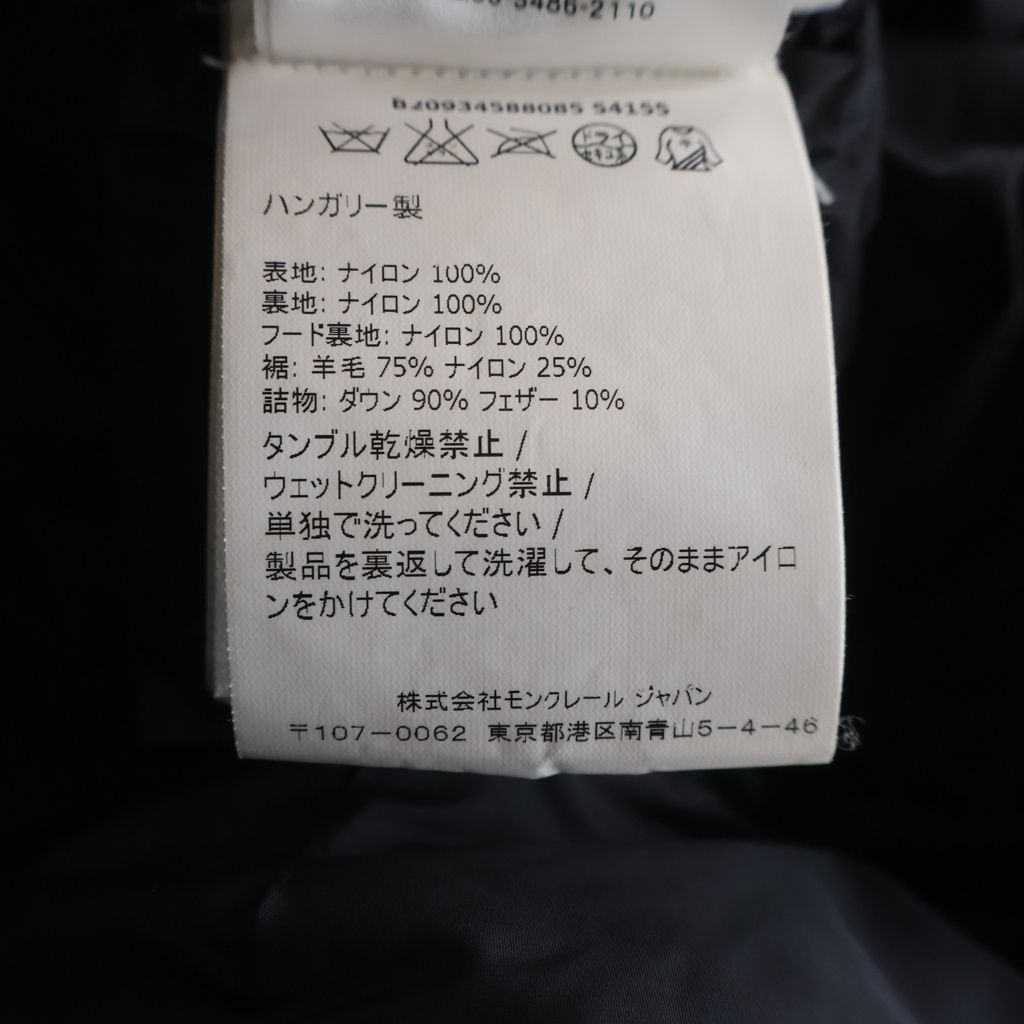 5486-2110
B20934588085 54155
ドライ
セキユ系
ハンガリー製
表地: ナイロン 100%
裏地: ナイロン 100%
フード裏地: ナイロン 100%
裾: 羊毛 75% ナイロン 25%
詰物: ダウン 90% フェザー 10%
タンブル乾燥禁止 /
ウェットクリーニング禁止 /
単独で洗ってください /
製品を裏返して洗濯して、そのままアイロ
ンをかけてください
株式会社モンクレール ジャパン
〒107-0062 東京都港区南青山5-4-46